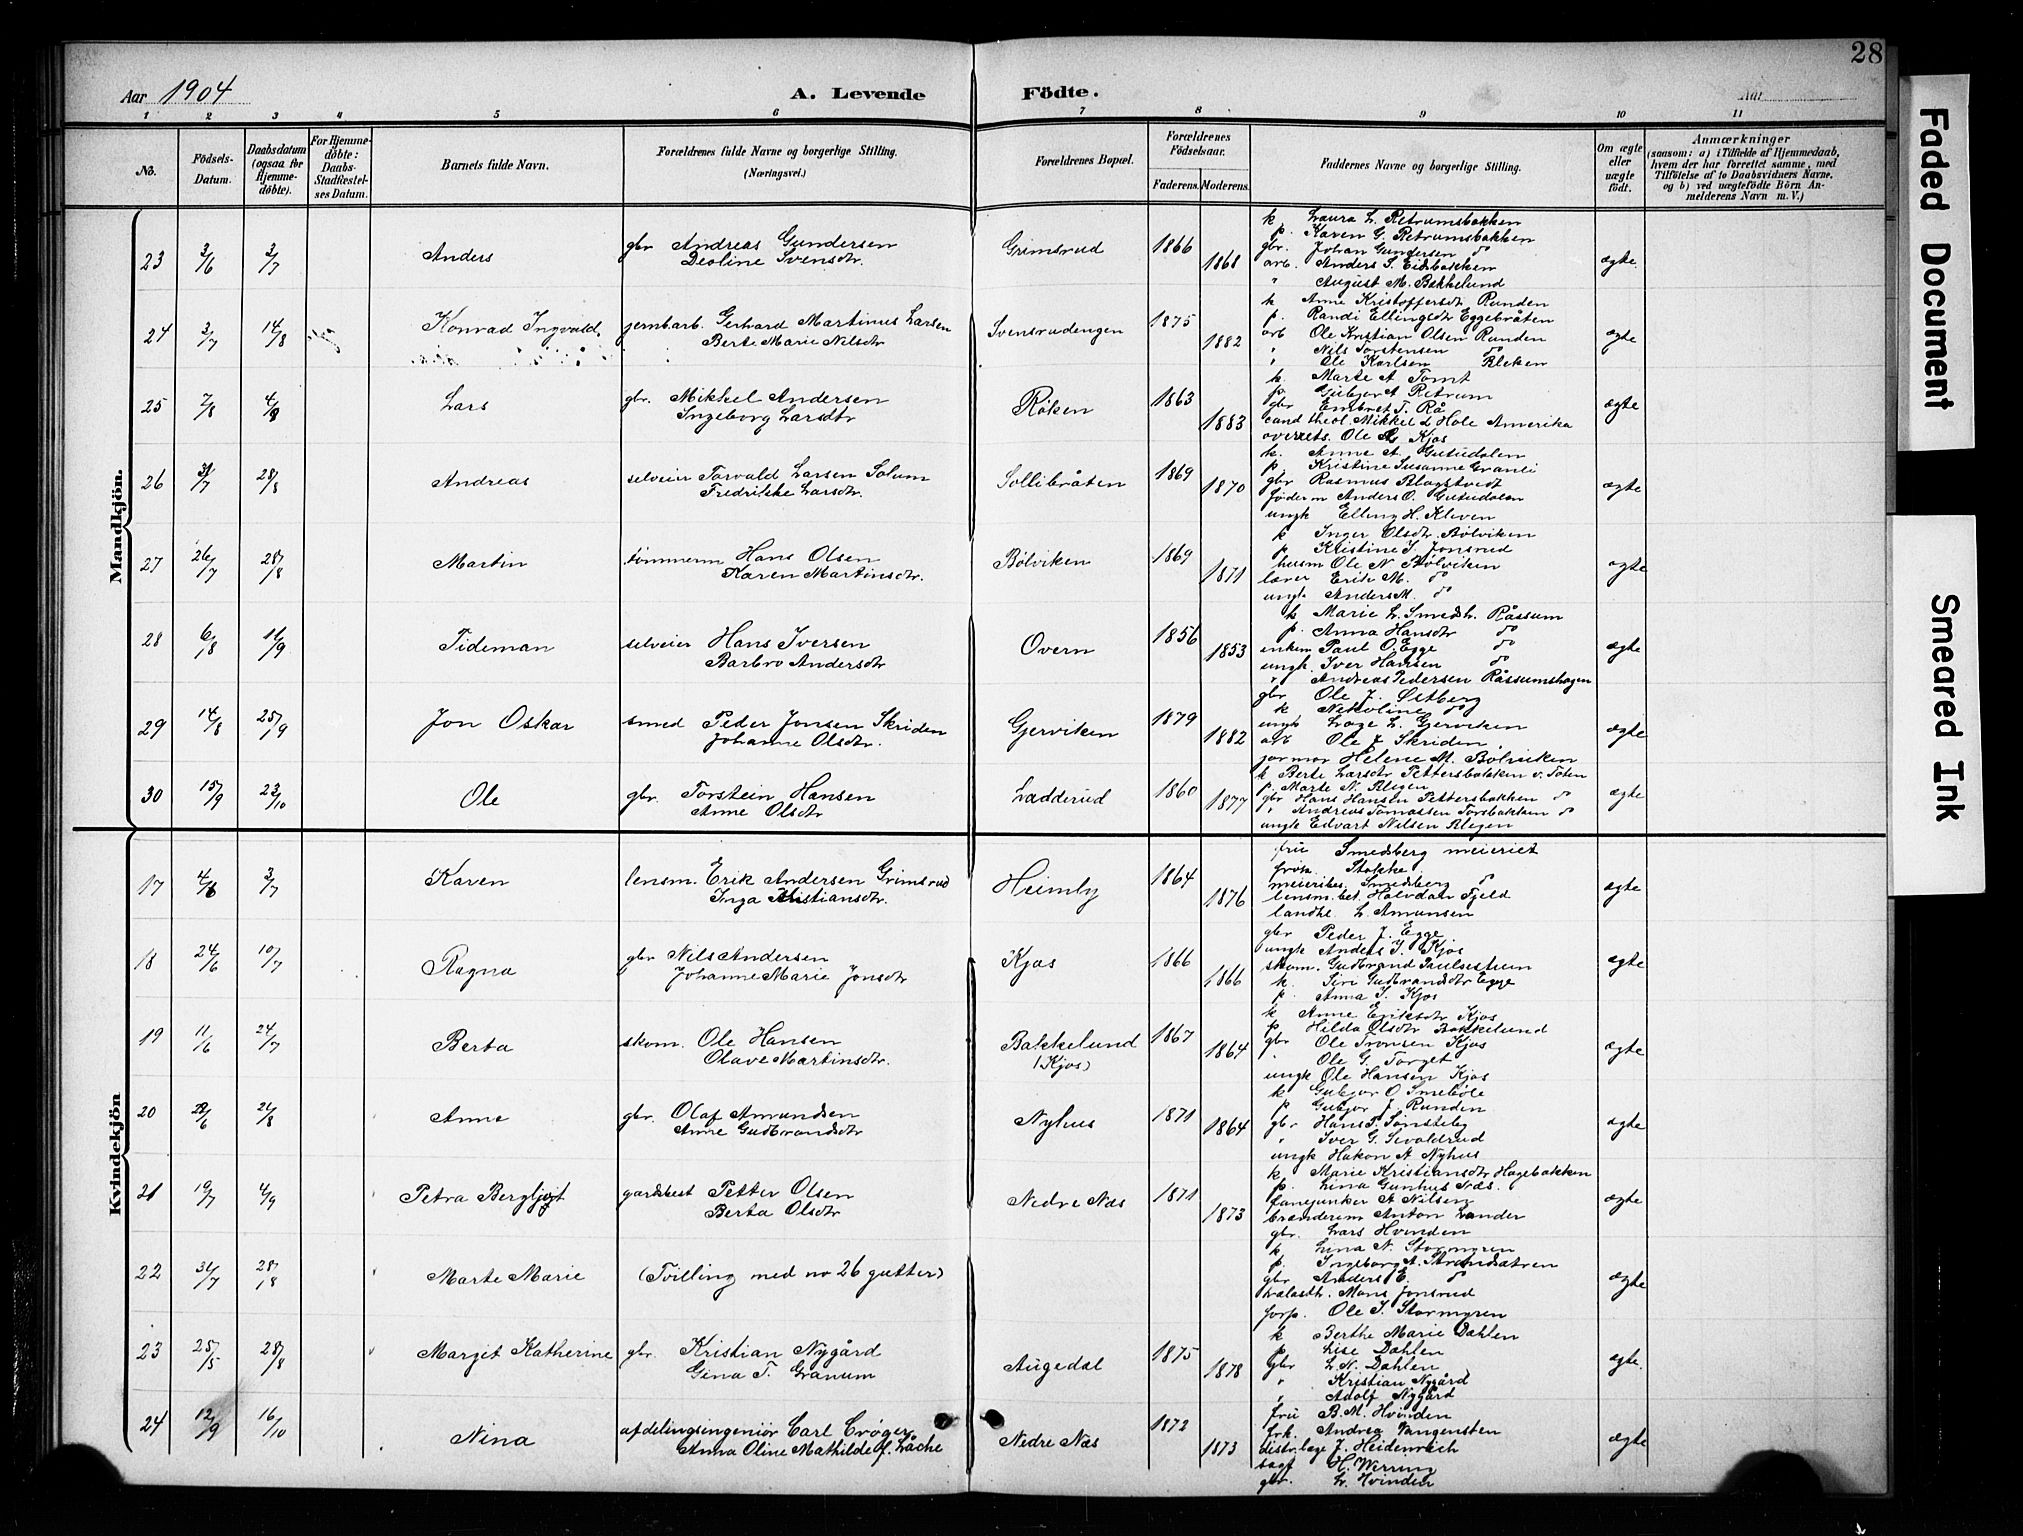 28
Aar 1904
A. Levende Födte.
Aar
1 2 3 4 5 6 7 8 9 10 11
No.
Födsels-Datum.
Daabsdatum (ogsaa for Hjemme-döbte).
For Hjemme-döbte: Daabs-Stadfæstel-ses Datum.
Barnets fulde Navn.
Forældrenes fulde Navne og borgerlige Stilling.
(Næringsvei.)
Forældrenes Bopæl.
Forældrenes Födselsaar.
Faderens. Moderens.
Faddernes Navne og borgerlige Stilling.
Om ægte eller uægte födt.
Anmærkninger
(saasom: a) i Tilfælde af Hjemmedaab, hvem der har forrettet samme, med Tilföielse af to Daabsvidners Navne, og b) ved uægtefödte Börn Anmelderens Navn m. V.)
Mandkjön.
23 3/6 3/7 Anders gbr Andreas Gundersen
Deoline Svensdtr. Grimsrud 1866 1868 ægte.
k Laura L. Retrumsbakken
p. Karen G. Retrumsbakken
gbr. Johan Gundersen do
arb. Anders S. Eidsbakken
" August M. Bakkelund
24 3/7 14/8 Konrad Ingvald jernbarb. Gerhard Martinus Larsen
Berte Marie Nilsdtr Svensrudengen 1875 1882 ægte
k Anne Kristoffersdtr Runden
p. Randi Ellingsdtr Eggebråten
arb Ole Kristian Olsen Runden
" Nils Torstensen do
" Ole Karlsen Bleken
25 7/8 4/9 Lars gbr. Mikkel Andersen
Ingeborg Larsdtr Röken 1863 1883 ægte
k. Marte A Tomt
p. Gubjør A Retrum
gbr Embret T. Rå
cand theol. Mikkel L Hole Amerika
overrets. Ole Kjos
26 31/7 28/8 Andreas selveier Torvald Larsen Solum
Fredrikke Larsdtr. Sollibråten 1869 1870 ægte
k. Anne A.
p. Kristine Susanne Granli
gbr Rasmus Blagstvedt
föderm Anders O.
ungk Elling H. Kleven
27 26/7 28/8 Martin tömmerm Hans Olsen
Karen Martinsdtr. Bölviken 1869 1871 ægte
k Inger Olsdtr. Bölviken
p. Kristine J. Jonsrud
husm Ole N Bölviken
lærer Erik M. do
ungk Anders M. do
28 6/8 11/9 Tideman selveier Hans Iversen
Barbro Andersdtr Overn 1856 1853 ægte
k Marie L. Smedsh. Råssum
p. Anna Hansdtr do
enkem Paul O. Egge do
ungk. Iver Hansen do
" Andreas Pedersen Råssumshagen
29 14/8 25/9 Jon Oskar smed Peder Jonsen Skriden
Johanne Olsdtr. Gjerviken 1879 1882 ægte
gbr Ole J. Östberg
k Nikoline do
ungk Lage L. Gjerviken
arb Ole J Skriden
jormor Helene M. Bölviken
30 15/9 23/10 Ole gbr. Torstein Hansen
Anne Olsdtr Ladderud 1860 1877 ægte
k Berte Larsdtr Pettersbakken v. Toten
p. Marte N. Blegen
gbr Hans Hansen Pettersbakken do
" Andreas Tomassen Torsbakken do
ungk Edvart Nilsen Blegen
Kvindekjön
17 4/6 3/7 Karen lensm. Erik Andersen Grimsrud
Inga Kristiansdtr. Heimly 1864 1876 ægte
fru Smedsberg meieriet
Stakke
meieribes. Smedsberg do
lensm.bet. Halvdan Fjeld
landhl. L. Amunsen
18 24/6 10/7 Ragna gbr Nils Andersen
Johanne Marie Jonsdtr Kjos 1866 1866 ægte
gbr Peder J. Egge
ungk Anders I. Kjos
skom. Gudbrand Paulsestuen
k. Siri Gudbrandsdtr Egge
p. Anna I. Kjos
19 11/6 24/7 Berta skom. Ole Hansen
Olave Martinsdtr. Bakkelund
(Kjos) 1867 1864 ægte
k Anne Eriksdtr Kjos
p Hilda Olsdtr Bakkelund
gbr Ole Tronsen Kjos
" Ole G. Torget
ungk Ole Hansen Kjos
20 22/6 21/8 Anne gbr. Olaf Amundsen
Anne Gudbrandsdtr Nyhus 1871 1864 ægte
k Gubjør O Smeböle
p Gubjør J. Runden
gbr Hans P. Sönsteby
" Iver G. Sevaldrud
ungk Hakon A Nyhus
21 19/7 4/9 Petra Bergljot gardsbest Petter Olsen
Berta Olsdtr Nedre Næs 1871 1873 ægte
k Marie Kristiansdtr Hagebakken
p. Lina Gunhus Næs.
fanejunker A Nilsen
brænderim Anton Lander
gbr. Lars Hvinden
22 31/7 28/8 Marte Marie (Tvilling med no 26 gutter) ægte
k Lina N. Stormyren
p. Ingeborg A. Strandsætren
gbr Anders E. do
Måns Jonsrud
forp. Ole I. Stormyren
23 25/5 28/8 Margit Katherine gbr. Kristian Nygård
Gina T. Granum Augedal 1875 1878 ægte.
k Berthe Marie Dahlen
p Lise Dahlen
gbr L. N. Dahlen
" Kristian Nygård
" Adolf Nygård
24 12/9 16/10 Nina afdelingsingeniör Carl Cröger
Anna Oline Mathilde f. Låche Nedre Næs 1872 1873 ægte
fru B. M. Hvinden
frk. Andrea Vangensten
distr.læge J. Heidenreich
sagf H. Werring
gbr. L. Hvinden
Faded Document
Smeared Ink